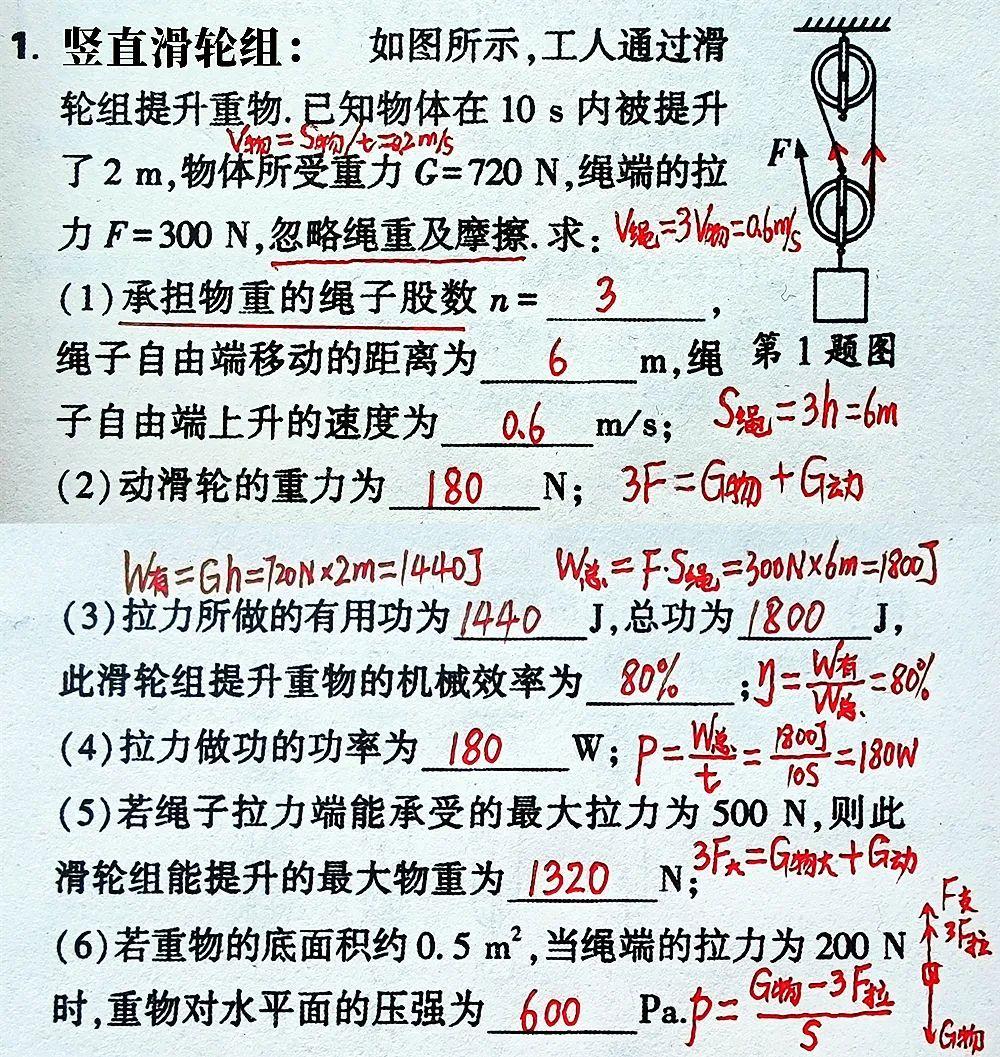 1. 竖直滑轮组: 如图所示,工人通过滑
轮组提升重物.已知物体在 10 s 内被提升
V物=S物/t=0.2m/s
了 2 m,物体所受重力 G=720 N,绳端的拉
F
力 F=300 N,忽略绳重及摩擦.求: V绳=3V物=0.6m/s
(1)承担物重的绳子股数 n= 3 ,
绳子自由端移动的距离为 6 m,绳
第 1 题图
子自由端上升的速度为 0.6 m/s; S绳=3h=6m
(2)动滑轮的重力为 180 N; 3F=G物+G动
W有=Gh=720N×2m=1440J W总=F·S绳=300N×6m=1800J
(3)拉力所做的有用功为 1440 J,总功为 1800 J,
此滑轮组提升重物的机械效率为 80% ; η=W有/W总=80%
(4)拉力做功的功率为 180 W; P=W总/t=1800J/10s=180W
(5)若绳子拉力端能承受的最大拉力为 500 N,则此
滑轮组能提升的最大物重为 1320 N; 3F大=G物大+G动
F支
3F拉
(6)若重物的底面积约 0.5 m²,当绳端的拉力为 200 N
时,重物对水平面的压强为 600 Pa. p=G物-3F拉/S
G物